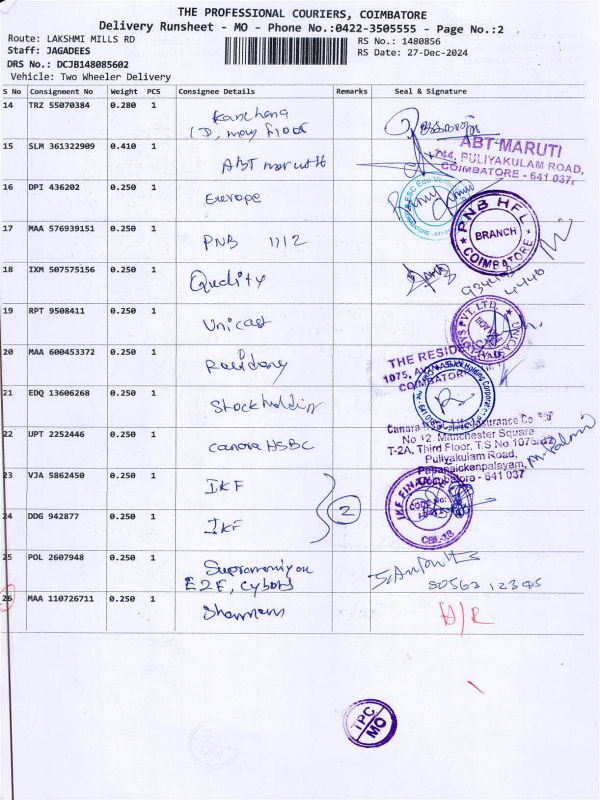 THE PROFESSIONAL COURIERS, COIMBATORE
Delivery Runsheet - MO - Phone No.:0422-3505555 - Page No.:2
Route: LAKSHMI MILLS RD
RS No.: 1480856
Staff: JAGADEES
RS Date: 27-Dec-2024
DRS No.: DCJB148085602
Vehicle: Two Wheeler Delivery
S No Consignment No Weight PCS Consignee Details Remarks Seal & Signature
14 TRZ 55070384 0.280 1 Kanchana
15 SLM 361322909 0.410 1 ABT maruthi
ABT-MARUTI
744, PULIYAKULAM ROAD,
COIMBATORE - 641 037.
16 DPI 436202 0.250 1 Europe
17 MAA 576939151 0.250 1 PNB
PNB HFL
BRANCH
COIMBATORE
18 IXM 507575156 0.250 1 Quality
19 RPT 9508411 0.250 1 Unicast
20 MAA 600453372 0.250 1
THE RESIDE
1075,
COIMBATOR
21 EDQ 13606268 0.250 1 Stockholding
22 UPT 2252446 0.250 1 Canara HSBC
No 12, Manchester Square
T-2A, Third Floor, T.S No.1075/
Puliyakulam Road,
Papanaickenpalayam,
Coimbatore - 641 037
23 VJA 5862450 0.250 1 IKF
2
24 DDG 942877 0.250 1 IKF
IKF FINAN
CODE No:
CBE-13
25 POL 2607948 0.250 1
E2F, Cyber
80563 12345
26 MAA 110726711 0.250 1
D/R
TPC
MO